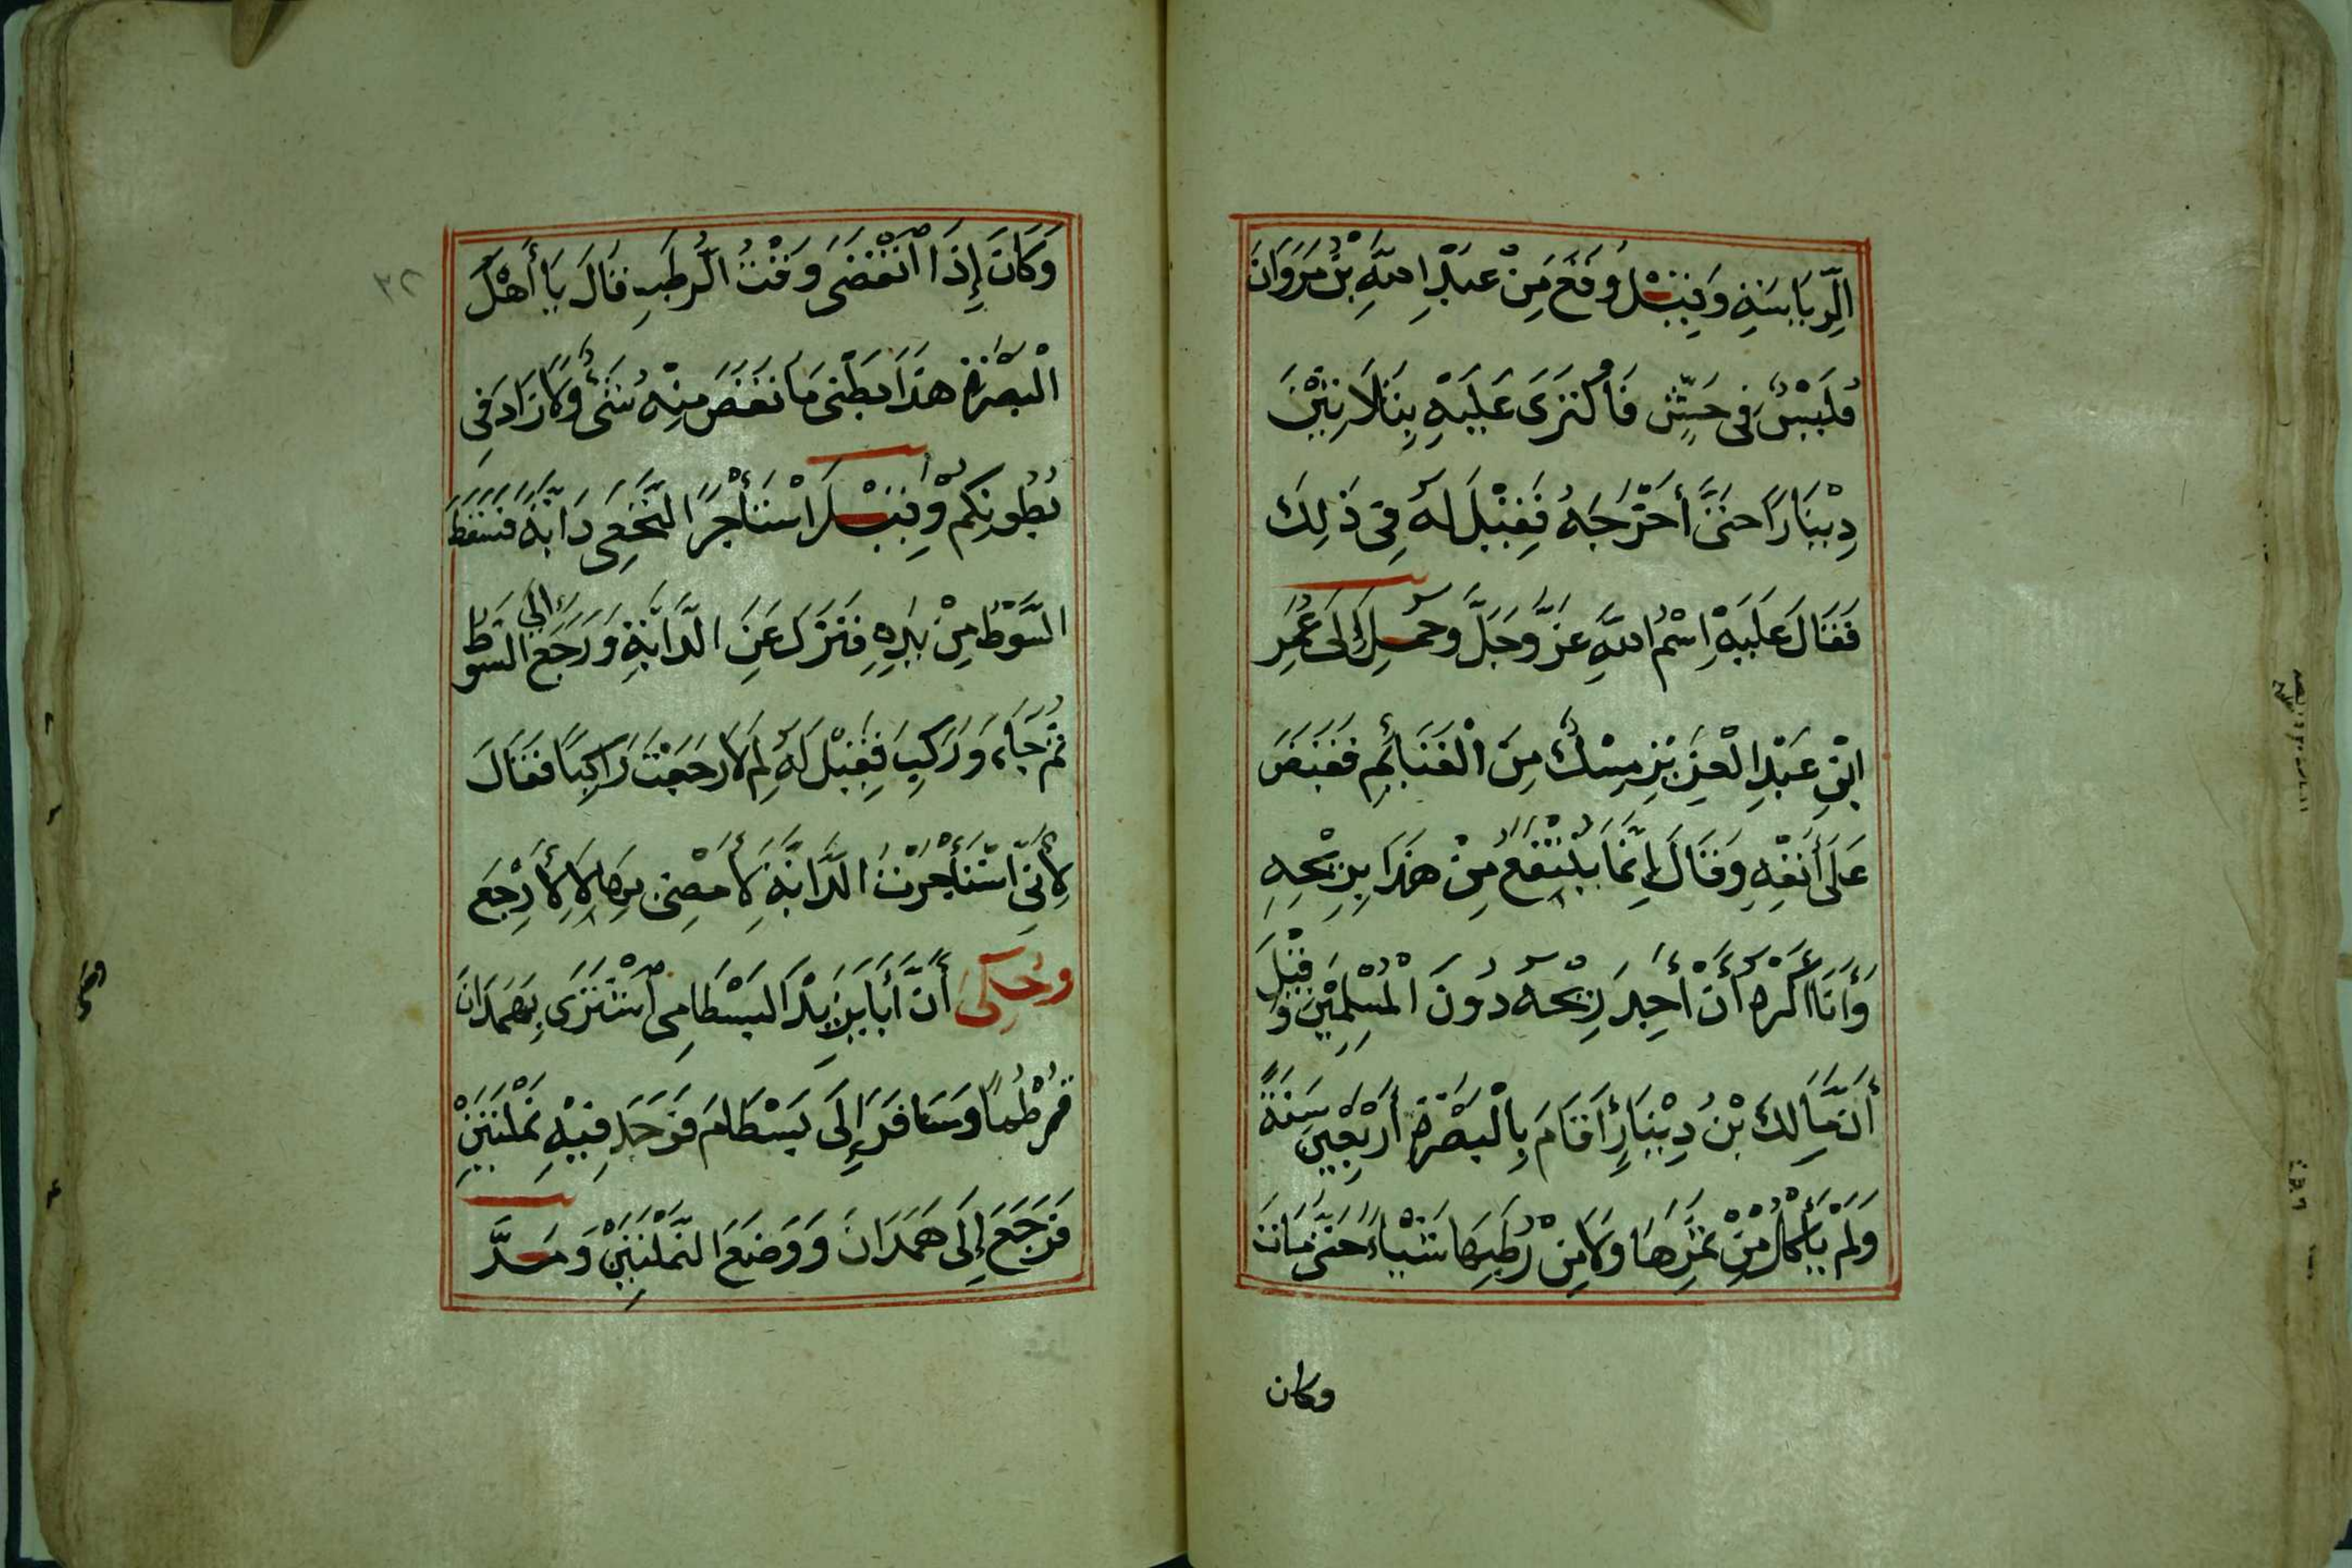 الرِّيَاسَةِ وَقِيْلَ وَقَعَ مِنْ عَبْدِ اللهِ بْنِ مَرْوَانَ
فَلَيْسٌ فِى حُشٍّ فَاكْتَرَى عَلَيْهِ بِثَلَاثِيْنَ
دِيْنَارًا حَتَّى أَخْرَجَهُ فَقِيْلَ لَهُ فِى ذَلِكَ
فَقَالَ عَلَيْهِ اِسْمُ اللهِ عَزَّ وَجَلَّ وَحُمِلَ إِلَى عُمَرَ
ابْنِ عَبْدِ الْعَزِيْزِ مِسْكٌ مِنَ الْغَنَائِمِ فَقَبَضَ
عَلَى أَنْفِهِ وَقَالَ إِنَّمَا يُنْتَفَعُ مِنْ هَذَا بِرِيْحِهِ
وَأَنَا أَكْرَهُ أَنْ أَجِدَ رِيْحَهُ دُونَ الْمُسْلِمِيْنَ وَقِيْلَ
أَنَّ مَالِكَ بْنَ دِيْنَارٍ أَقَامَ بِالْبَصْرَةِ أَرْبَعِيْنَ سَنَةً
وَلَمْ يَأْكُلْ مِنْ تَمْرِهَا وَلَا مِنْ رُطَبِهَا شَيْاءً حَتَّى مَاتَ
وكان
٣٢
وَكَانَ إِذَا انْقَضَى وَقْتُ الرُّطَبِ قَالَ يَا أَهْلَ
الْبَصْرَةِ هَذَا بَطْنِى مَا نَقَصَ مِنْهُ شَىْءٌ وَلَا زَادَ فِى
بُطُونِكُمْ وَقِيْلَ اسْتَأْجَرَ النَّخَعِى دَابَّةً فَسَقَطَ
السَّوْطُ مِنْ يَدِهِ فَنَزَلَ عَنِ الدَّابَّةِ وَرَجَعَ إلى السَّوْطِ
ثُمَّ جَاءَ وَرَكِبَ فَقِيْلَ لَهُ لِمَ لَا رَجَعْتَ رَاكِبًا فَقَالَ
لِأَنِّى اسْتَأْجَرْتُ الدَّابَّةَ لِأَمْضِىَ بِهَا لَا لِأَرْجَعَ
وَحُكِىَ أَنَّ أَبَا يَزِيْدَ الْبَسْطَامِى اشْتَرَى بِهَمَدَانَ
قُرْطُمًا وَسَافَرَ إِلَى بَسْطَامَ فَوَجَدَ فِيْهِ نَمْلَتَيْنِ
فَرَجَعَ إِلَى هَمَدَانَ وَوَضَعَ النَّمْلَتَيْنِ وَمَدَّ